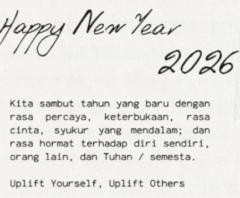 Happy New Year
2026
Kita sambut tahun yang baru dengan
rasa percaya, keterbukaan, rasa
cinta, syukur yang mendalam; dan
rasa hormat terhadap diri sendiri,
orang lain, dan Tuhan / semesta.
Uplift Yourself, Uplift Others